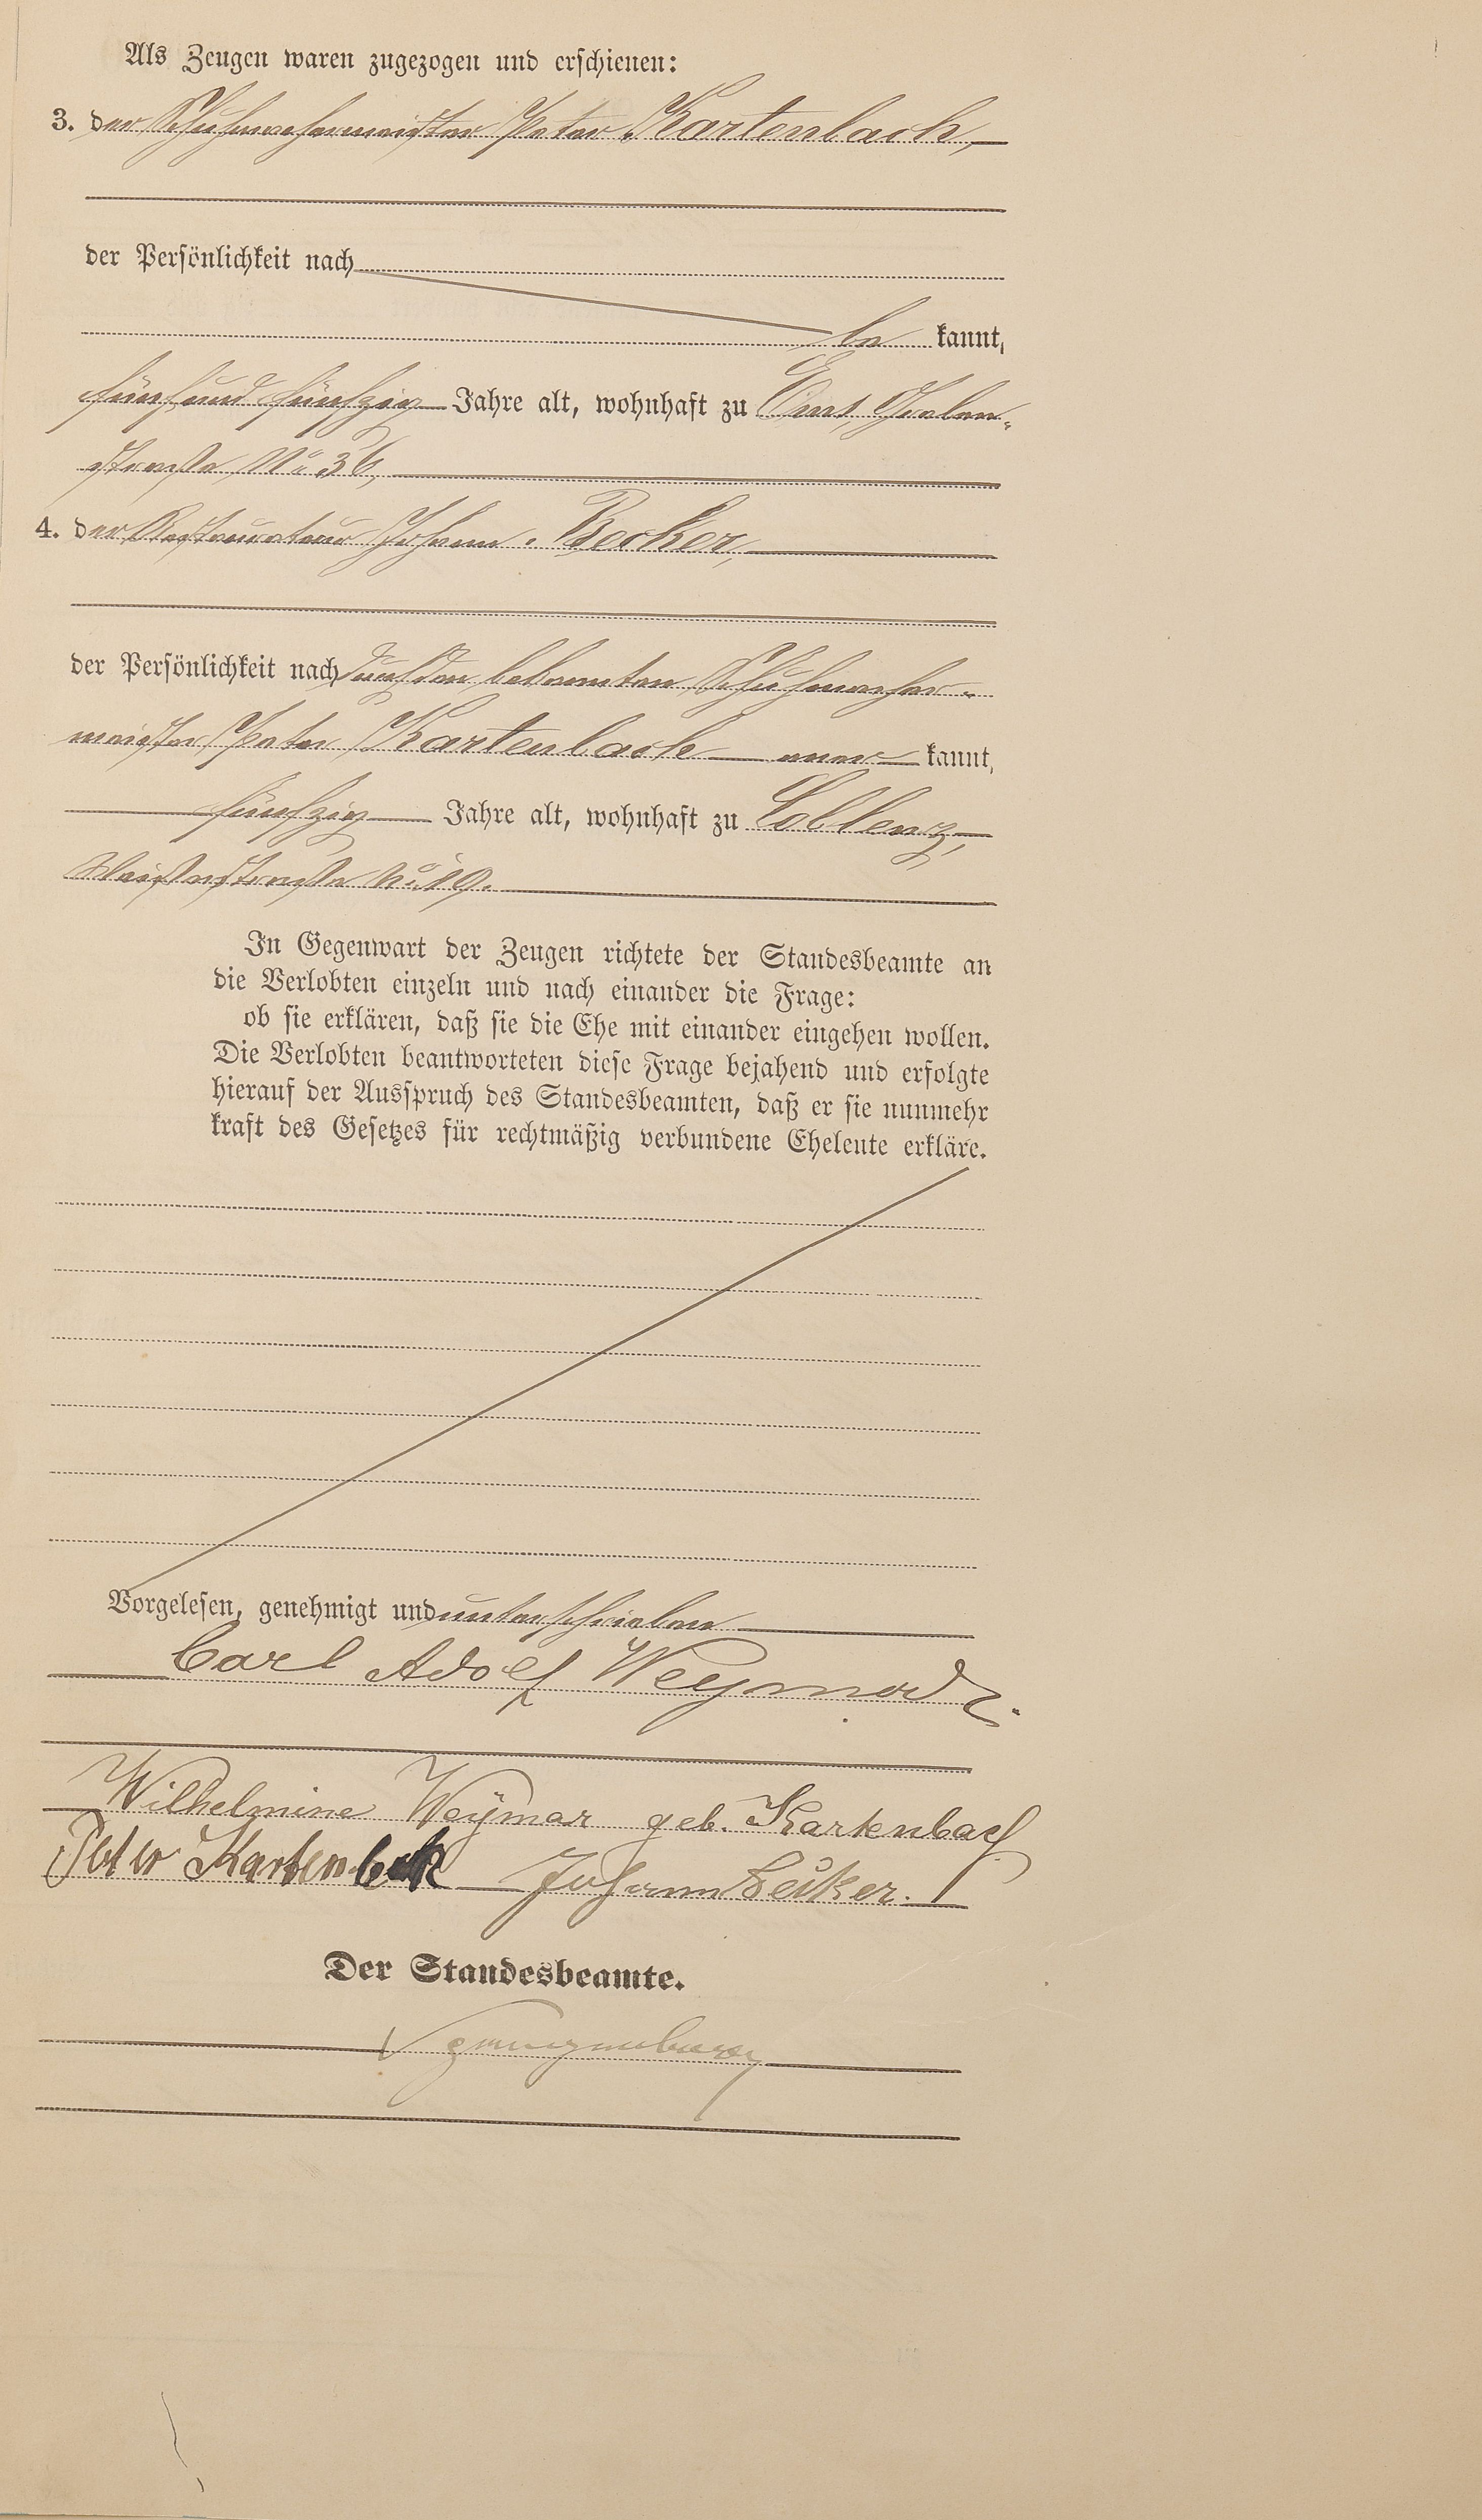 Als Zeugen waren zugezogen und erschienen:
3. der Schuhmachermeister Peter Kartenbach,
der Persönlichkeit nach
be kannt,
fünfund fünfzig Jahre alt, wohnhaft zu Ems, Graben-
straße No 36,
4. der Restaurateur Johann Becker,
der Persönlichkeit nach durch den bekannten Schuhmacher-
meister Peter Kartenbach aner kannt,
fünfzig Jahre alt, wohnhaft zu Coblenz,
straße No 19.
In Gegenwart der Zeugen richtete der Standesbeamte an
die Verlobten einzeln und nach einander die Frage:
ob sie erklären, daß sie die Ehe mit einander eingehen wollen.
Die Verlobten beantworteten diese Frage bejahend und erfolgte
hierauf der Ausspruch des Standesbeamten, daß er sie nunmehr
kraft des Gesetzes für rechtmäßig verbundene Eheleute erkläre.
Vorgelesen, genehmigt und unterschrieben
Carl Adolf Weymar
Wilhelmine Weymar geb. Kartenbach
Peter Kartenbach Johann Becker.
Der Standesbeamte.